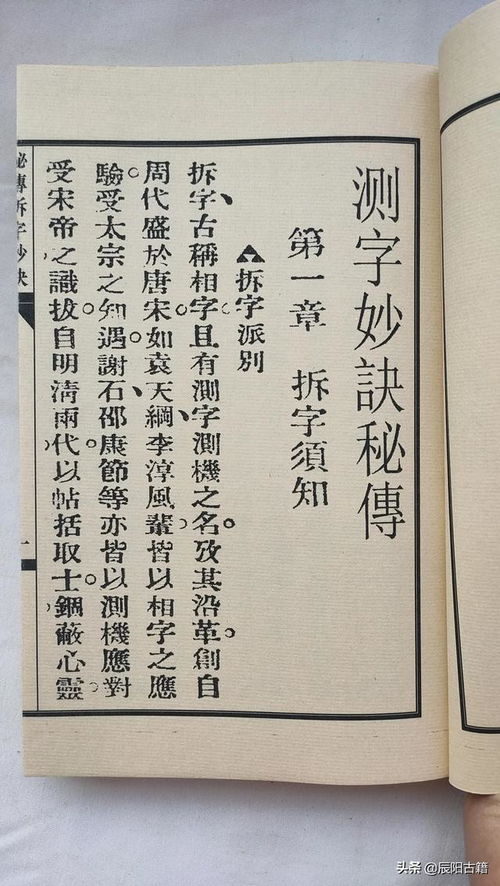 测字妙訣秘傳
第一章 拆字須知
▲拆字派別
拆字、古稱相字。且有測字測機之名。攷其沿革。創自
周代。盛於唐宋。如袁天綱、李淳風輩。皆以相字之應
驗。受太宗之知遇。謝石、邵康節等。亦皆以測機應對。
受宋帝之識拔。自明淸兩代。以帖括取士。錮蔽心靈。
秘傳拆字妙訣
一
头条 @辰阳古籍